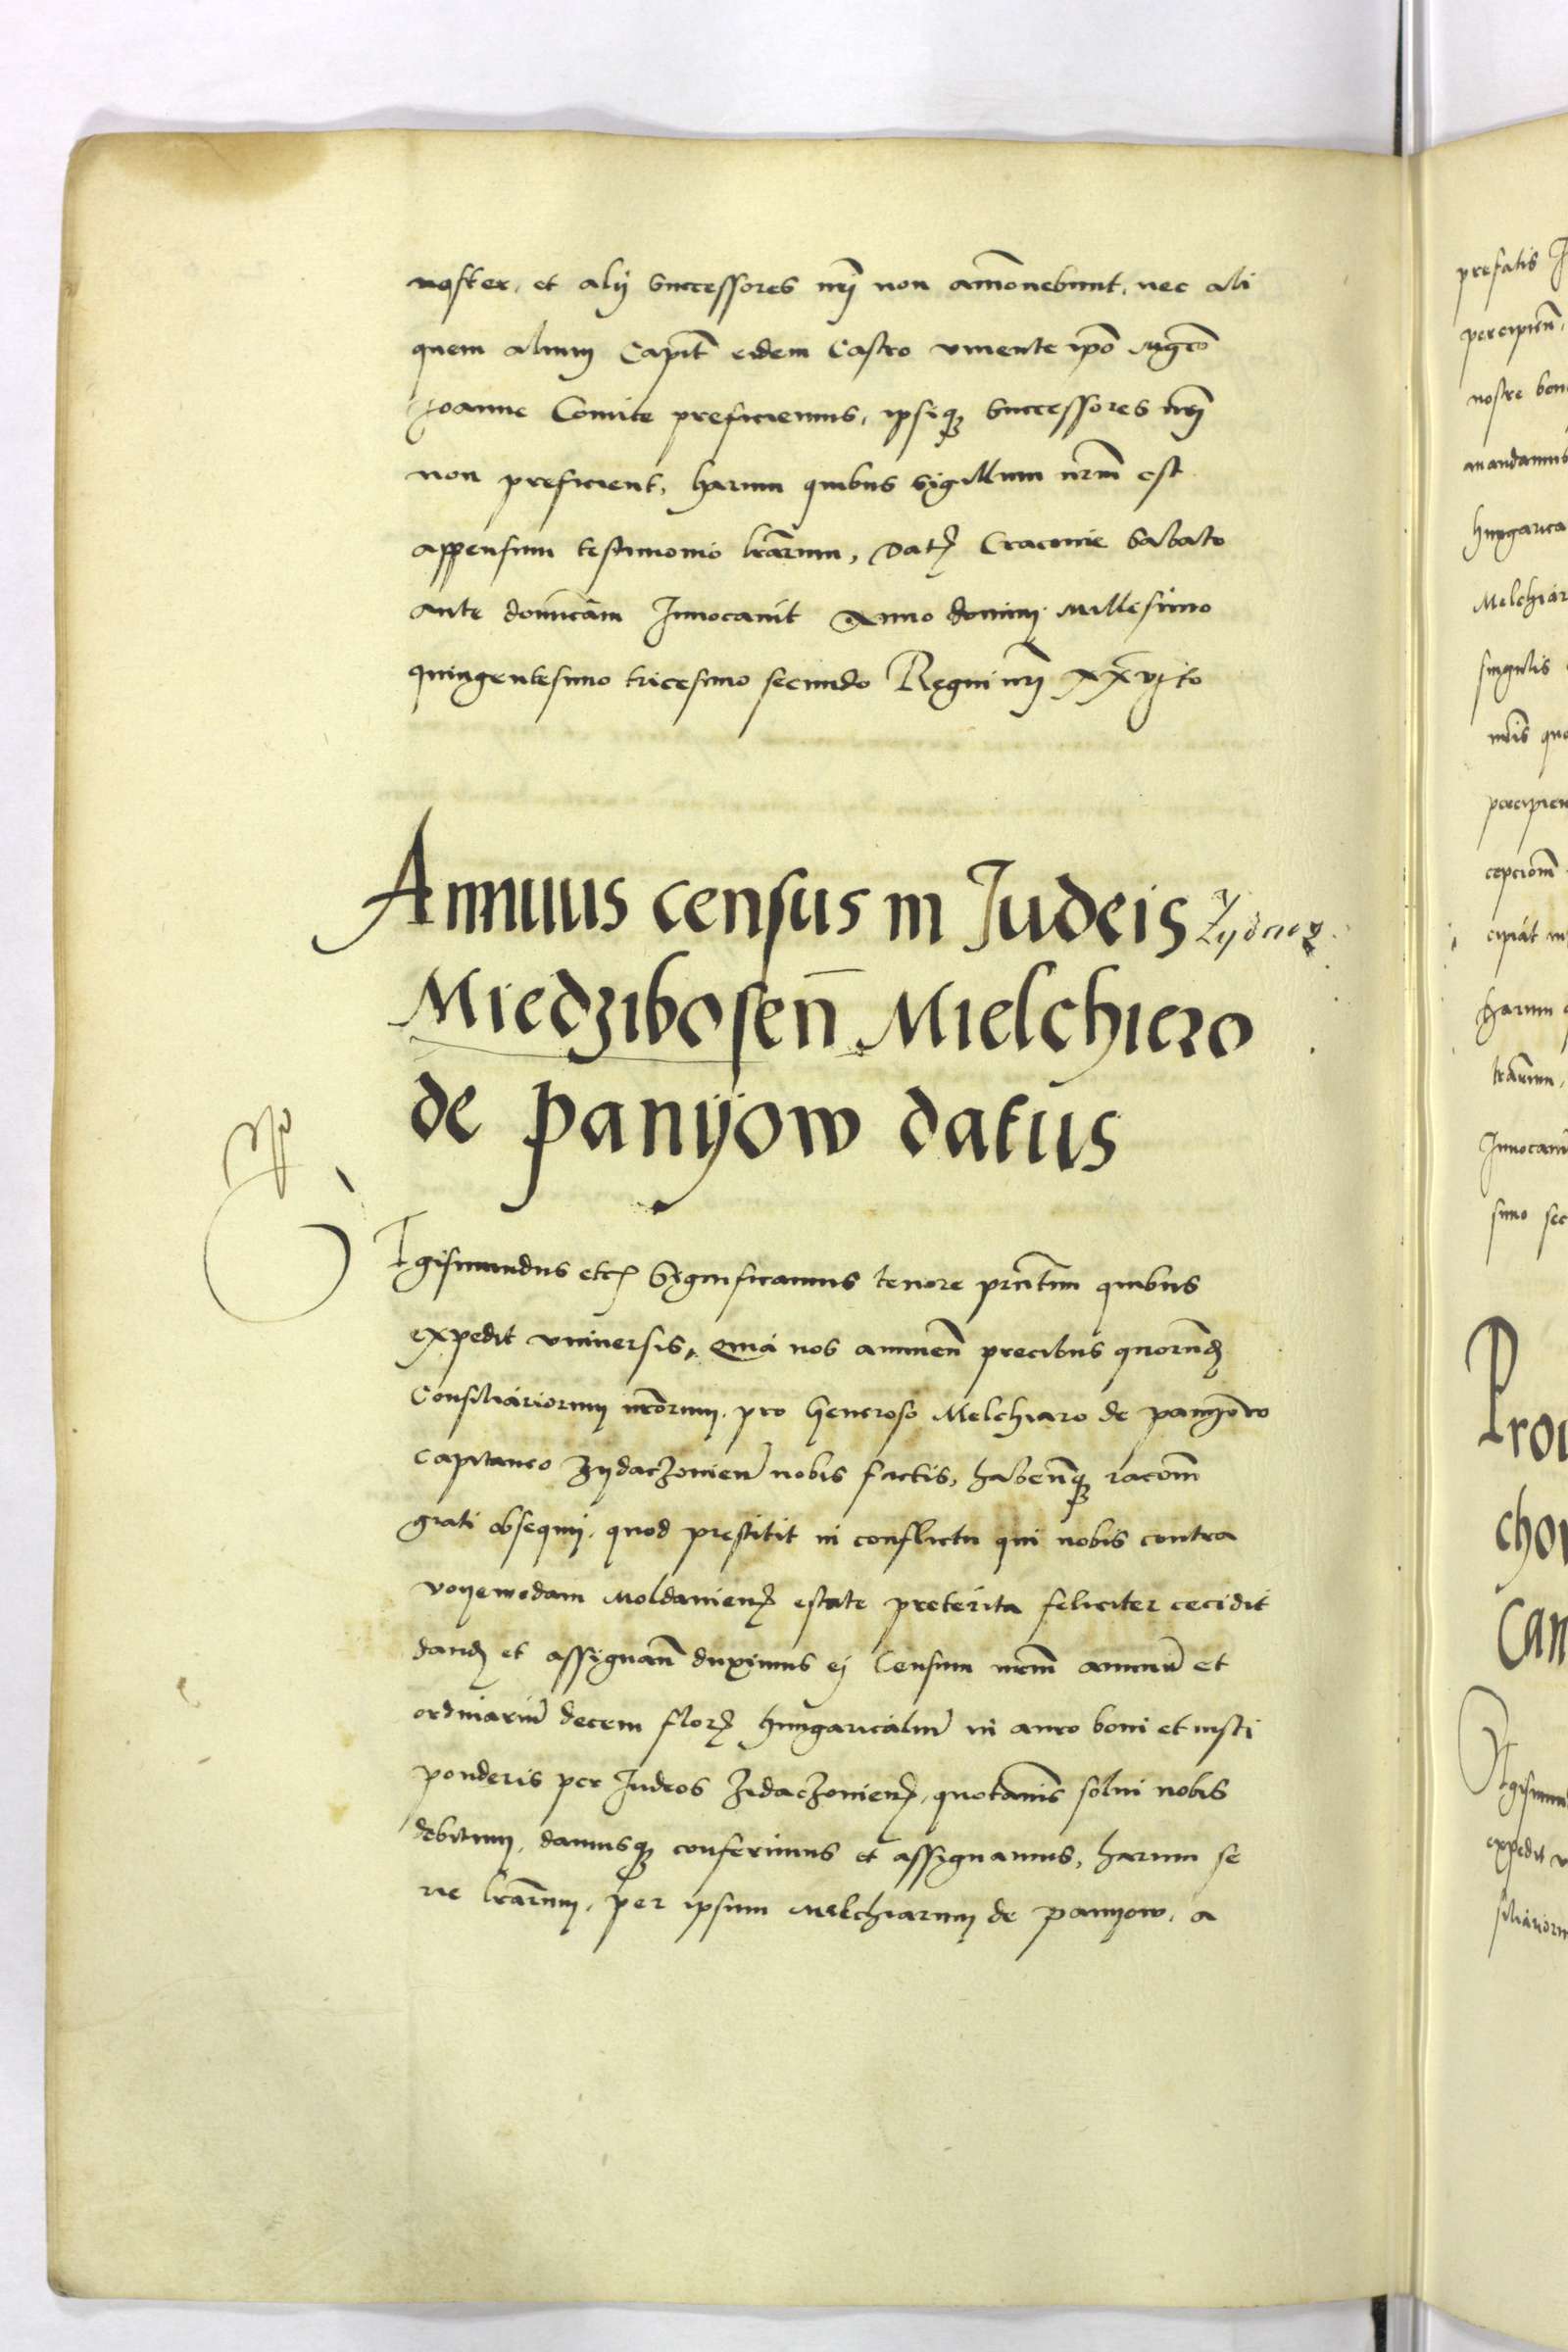 noster, et alij successores nrj̄ non amōnebunt, nec ali
quem alium Capit̄ eidem Castro viuente ip̄o Mgco̅
Joanne Comite preficiemus, ipsiq; successores nrj̄
non preficient, harum quibus sigillum nrm̄ est
appensum testimonio lrārum, Datꝭ Cracouie Sabato
ante dominicām Inuocauit Anno dominj Millesimo
quingentesimo tricesimo secundo Regni nrj̄ xxvjto
Annuus census in Judeis Zydacz.
Miedzibosen̄ Mielchiero
de panijow datus
Igismundus etcꝭ Significamus tenore prn̄tium quibus
expedit vniuersis, Quia nos annuen̄ precibus quorund̄
Consiliariorum nrōrum, pro Generoso Melchiaro de panyowo
Capitaneo Zydaczouien̄ nobis factis, haben̄q; racōm
grati obsequij, quod prestitit in conflictu qui nobis contra
voyewodam Moldauienꝭ estate preterita feliciter cecidit
dand̄ et assignan̄ duximus ej Censum nrm̄ annuū et
ordinariū decem florꝭ hungaricaliū in auro boni et iusti
ponderis per Judeos Zidaczouienꝭ, quotannis solui nobis
debitum, damusq; conferimus et assignamus, harum se
rie lrārum, per ipsum Melchiarum de panyow, a
prefatis
percipien̄,
nostre
mandamus
hungarica
Melchiar
singulis
nrīs
percipien
cepcionem
cipiat
harum
lrārum,
Inuocauit
simo sec
Pro
cho
Can
expedit
siliariorum